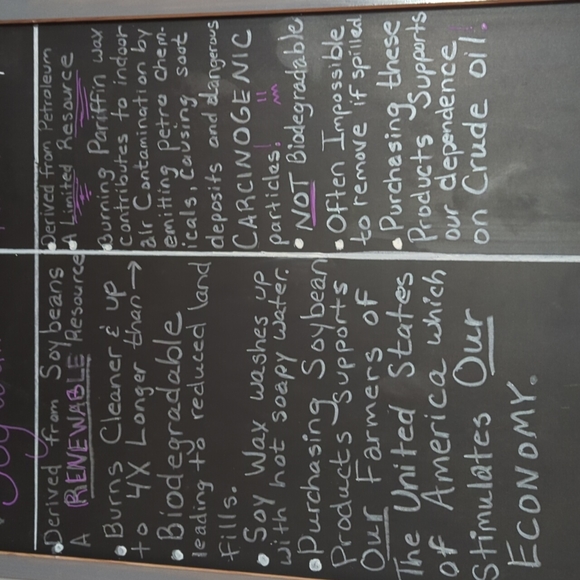 Soy
• Derived from Soybeans
A RENEWABLE Resource
• Burns Cleaner & up
to 4X Longer than →
• Biodegradable
leading to reduced land
fills.
• Soy Wax washes up
with hot soapy water.
• Purchasing Soybean
Products Supports
Our Farmers of
The United States
of America which
Stimulates Our
ECONOMY.
• Derived from Petroleum
A Limited Resource
• Burning Pariffin wax
contributes to indoor
air Contamination by
emitting petro chem-
icals, Causing soot
deposits and dangerous
CARCINOGENIC
particles! !!
• NOT Biodegradable
• Often Impossible
to remove if spilled
• Purchasing these
Products Supports
our dependence
on Crude oil.